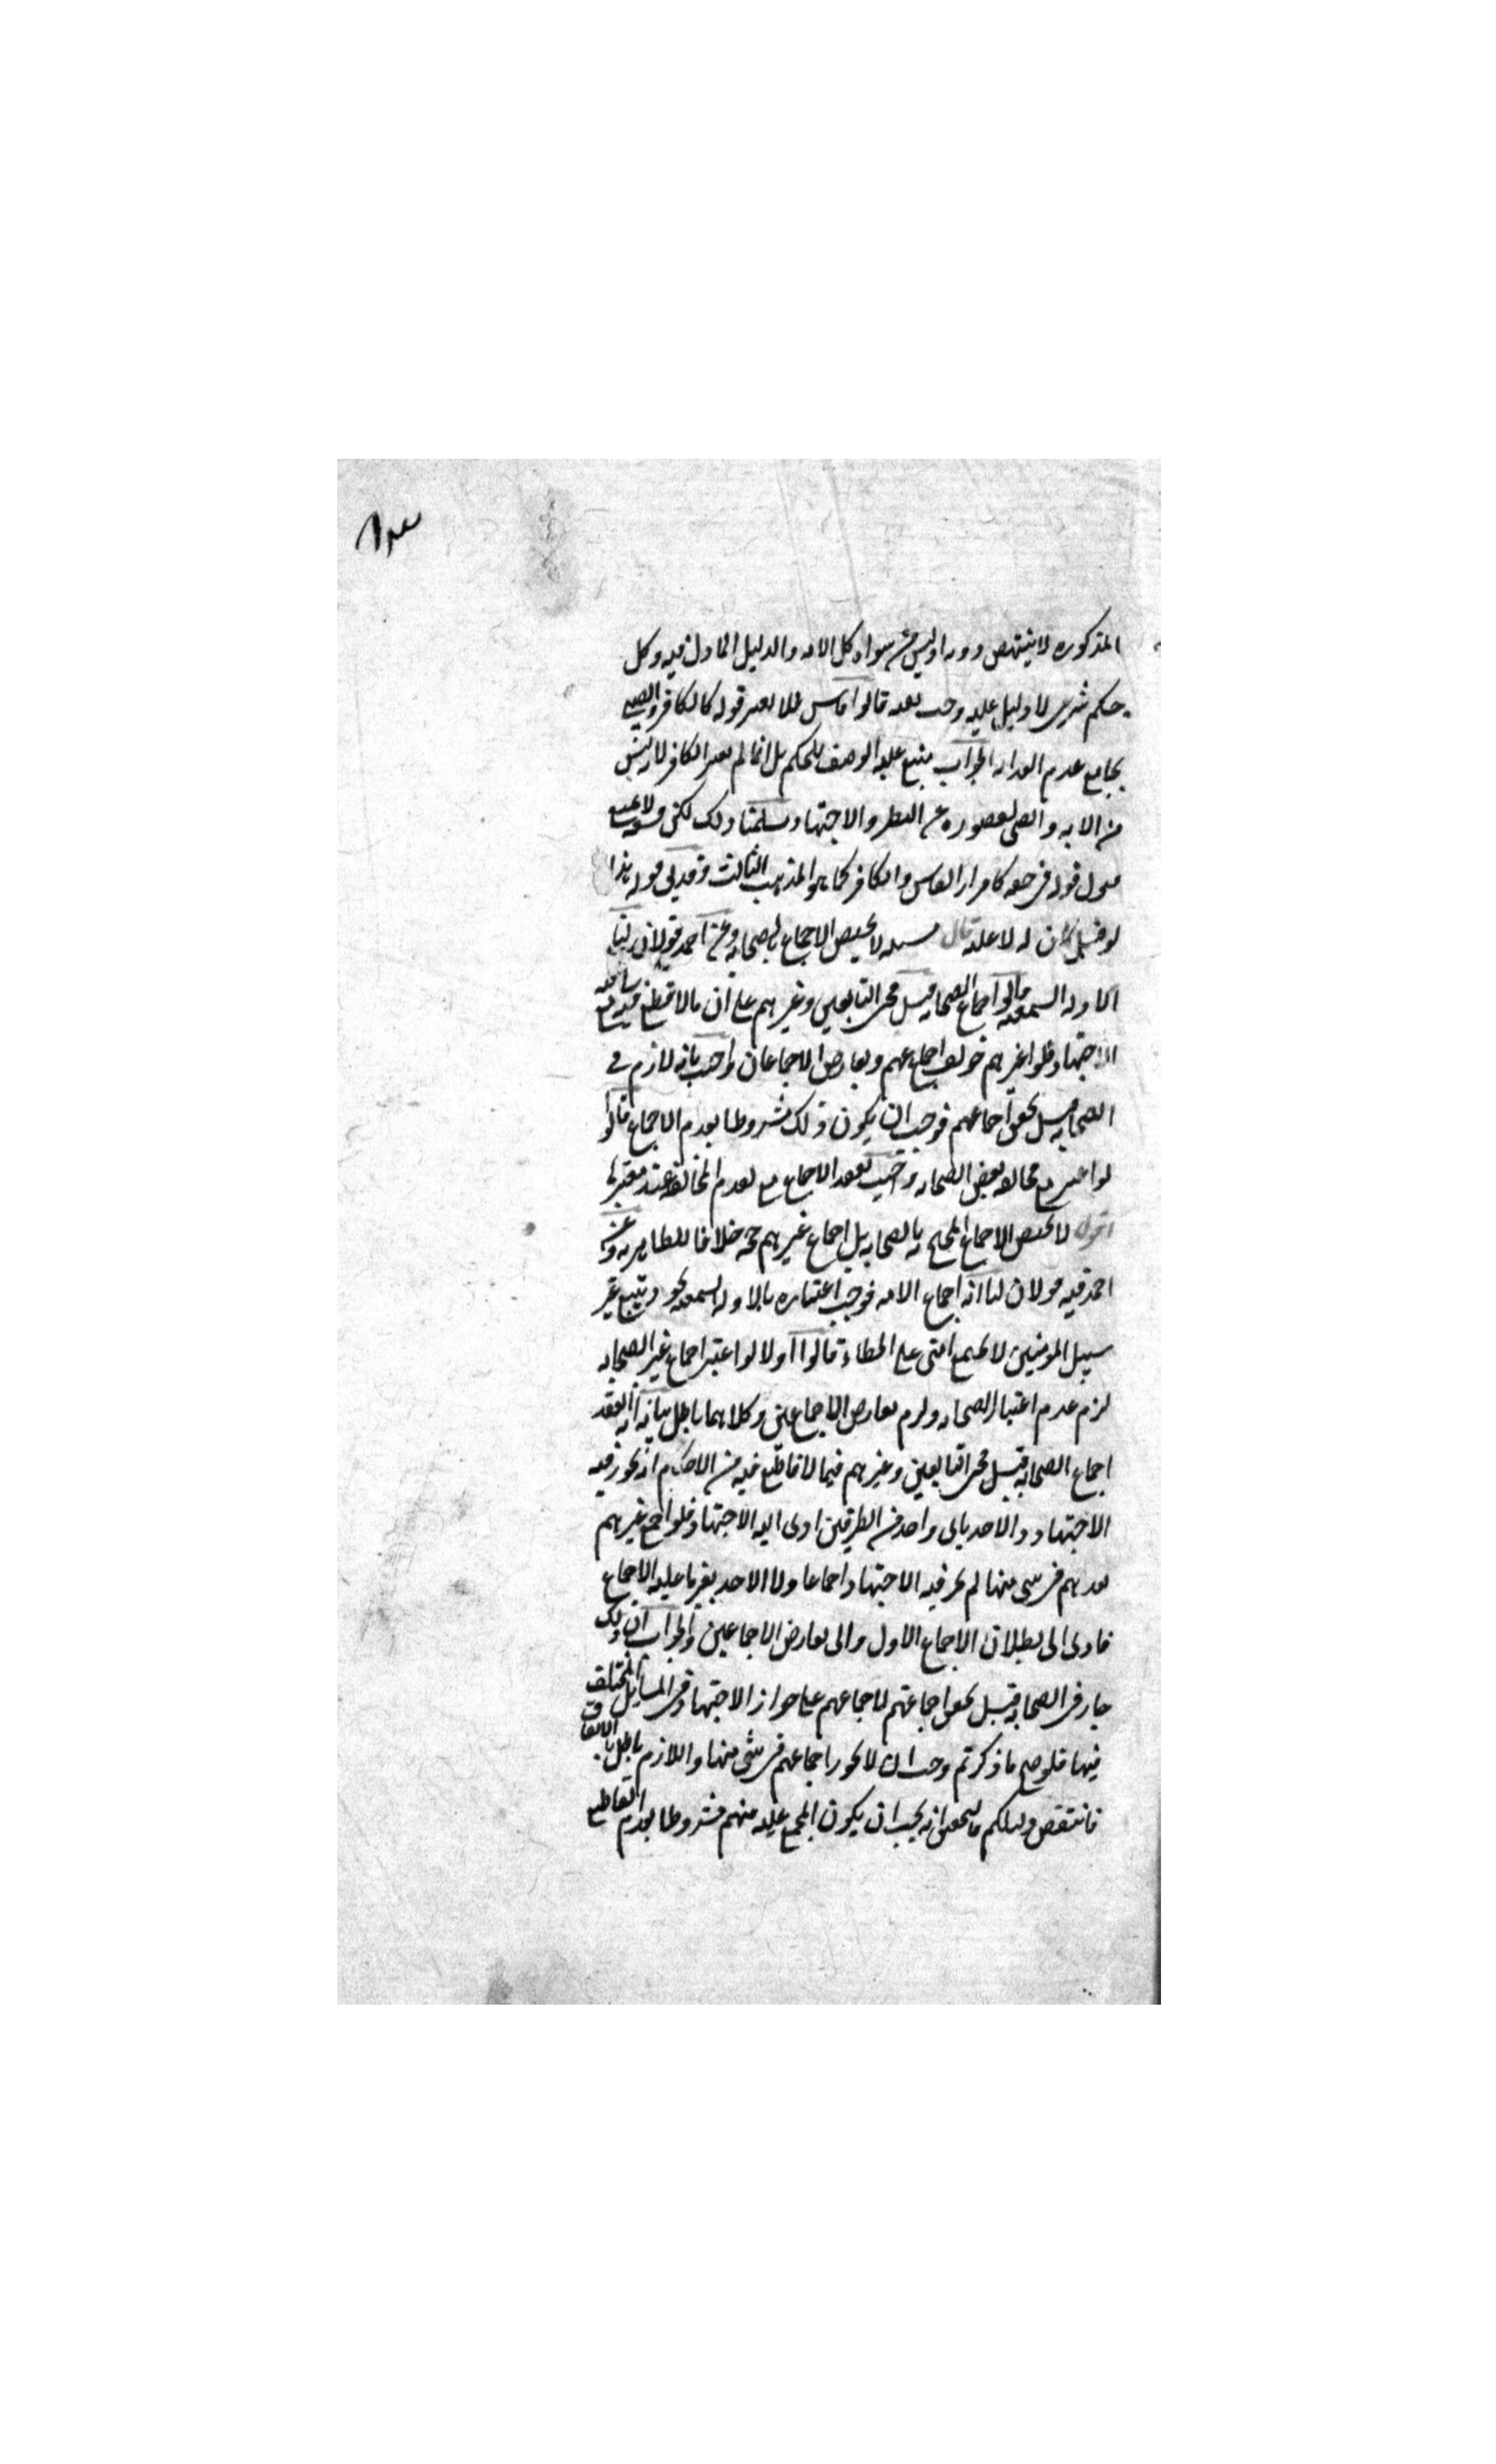 ١٨٣
المذكورة لا ينتهض دونه اذ ليس من سواه كل الامه والدليل انما دل فيه وكل
حكم شرعى لا دليل عليه وجب نفيه قالوا فاسق فلا يعتبر قوله كالكافر والصبى
بجامع عدم العدالة الجواب بمنع علية الوصف للحكم بل انما لم يعتبر الكافر لانه ليس
من الامه والصبى لقصوره عن النظر والاجتهاد سلمنا ذلك لكن
قبول قوله فى حقه كاقرار الفاسق والكافر كما هو المذهب الثالث هذا
لو قيل كان له لا عليه قال مسئله لا يختص الاجماع بالصحابه وعن احمد قولان لنا
الادله السمعيه قالوا اجماع الصحابه قبل مجى التابعين وغيرهم على ان ما لا قطع فيه
الاجتهاد فلو اعتبر غيرهم خولف اجماعهم وتعارض الاجماعان واجيب بانه لازم فى
الصحابه قبل تحقق اجماعهم فوجب ان يكون ذلك مشروطا بعدم الاجماع قالوا
لو اعتبر مع مخالفة بعض الصحابه واجيب بفقد الاجماع مع تقدم المخالفة عند معتبرها
اقول لا يختص الاجماع المحتج به بالصحابه بل اجماع غيرهم حجه خلافا للظاهريه وعن
احمد فيه قولان لنا انه اجماع الامه فوجب اعتباره بالادله السمعيه نحو ويتبع غير
سبيل المومنين لا تجتمع امتى على الخطاء قالوا اولا لو اعتبر اجماع غير الصحابه
لزم عدم اعتبار الصحابه ولزم تعارض الاجماعين وكلاهما باطل بيانه انه انعقد
اجماع الصحابه قبل مجى التابعين وغيرهم فيما لا قاطع فيه من الاحكام انه يجوز فيه
الاجتهاد والاخذ باى واحد من الطرفين ادى اليه الاجتهاد فلو اجمع غيرهم
بعدهم فى شى منها لم يجز فيه الاجتهاد اجماعا ولا الاخذ بغير ما عليه الاجماع
فادى الى بطلان الاجماع الاول والى تعارض الاجماعين والجواب ان ذلك
جار فى الصحابه قبل تحقق اجماعهم لاجماعهم على جواز الاجتهاد فى المسايل المختلف
فيها فلو صح ما ذكرتم وجب ان لا يجوز اجماعهم فى شى منها واللازم باطل بالاتفاق
فانتقض دليلكم والتحقيق انه يجب ان يكون المجمع عليه منهم مشروطا بعدم القاطع